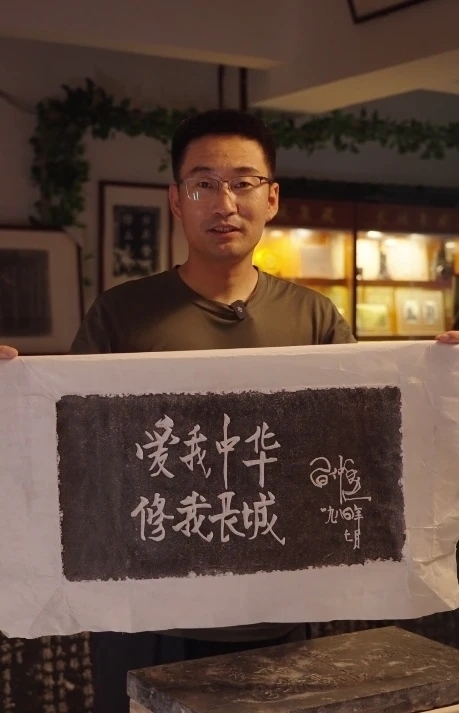 爱我中华
修我长城
习仲勋
一九八四年
七月